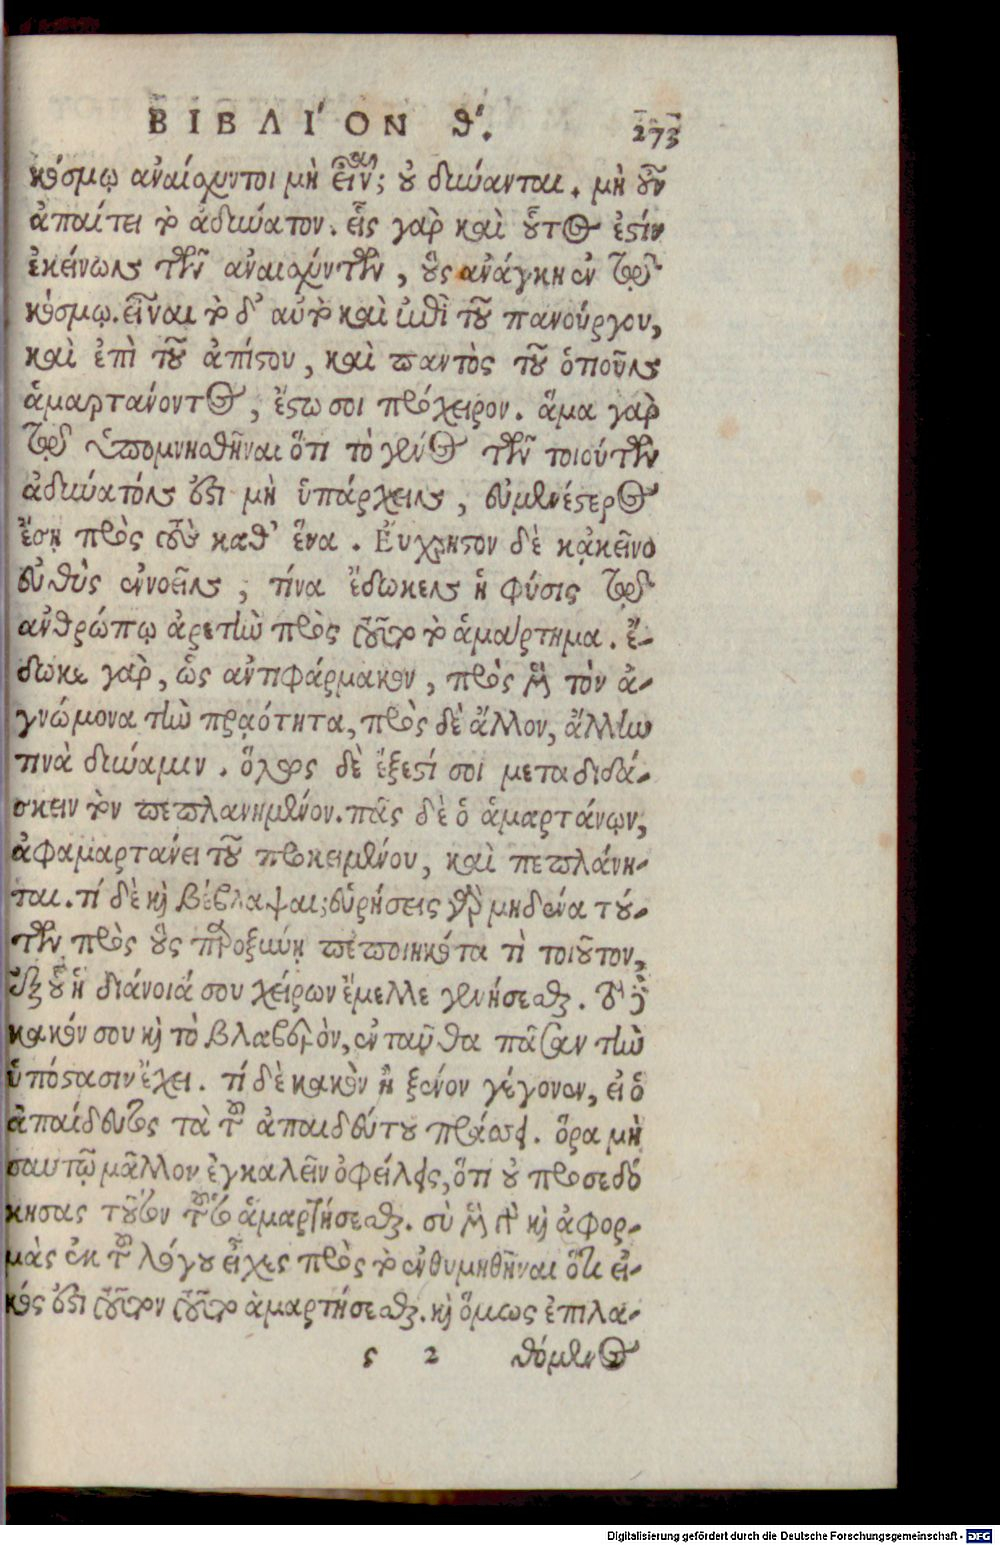 ΒΙΒΛΙ´ΟΝ θ´. 273
κόσμῳ ἀναίσχυντοι μὴ εἶναι; οὐ δύνανται. μὴ οὖν
ἀπαίτει τὸ ἀδύνατον. εἷς γὰρ καὶ οὗτος ἐστὶν
ἐκείνων τῶν ἀναισχύντων, οὓς ἀνάγκη ἐν τῷ
κόσμῳ. εἶναι τὸ δ' αὐτὸ καὶ ἐπὶ τοῦ πανούργου,
καὶ ἐπὶ τοῦ ἀπίστου, καὶ παντὸς τοῦ ὁποῦν
ἁμαρτάνοντος, ἔστω σοι πρόχειρον. ἅμα γὰρ
τῷ ὑπομνησθῆναι ὅτι τὸ γένος τῶν τοιούτων
ἀδύνατόν ἐστι μὴ ὑπάρχειν, εὐμενέστερος
ἔσῃ πρὸς τοὺς καθ' ἕνα. Εὔχρηστον δὲ κἀκεῖνο
εὐθὺς ἐννοεῖν, τίνα ἔδωκεν ἡ φύσις τῷ
ἀνθρώπῳ ἀρετὴν πρὸς τοῦτο τὸ ἁμάρτημα. ἔ-
δωκε γὰρ, ὡς ἀντιφάρμακον, πρὸς μὲν τὸν ἀ-
γνώμονα τὴν πρᾳότητα, πρὸς δὲ ἄλλον, ἄλλην
τινὰ δύναμιν. ὅλως δὲ ἔξεστί σοι μεταδιδά-
σκειν τὸν πεπλανημένον. πᾶς δὲ ὁ ἁμαρτάνων,
ἀφαμαρτάνει τοῦ προκειμένου, καὶ πεπλάνη-
ται. τί δὲ καὶ βέβλαψαι; εὑρήσεις γὰρ μηδένα τού-
των πρὸς οὓς παροξύνῃ πεποιηκότα τὶ τοιοῦτον,
ἐξ οὗ ἡ διάνοιά σου χείρων ἔμελλε γενήσεσθαι. τὸ δὲ
κακόν σου καὶ τὸ βλαβερὸν, ἐνταῦθα πᾶσαν τὴν
ὑπόστασιν ἔχει. τί δὲ κακὸν ἢ ξένον γέγονεν, εἰ ὁ
ἀπαίδευτος τὰ τοῦ ἀπαιδεύτου πράσσει. ὅρα μὴ
σαυτῷ μᾶλλον ἐγκαλεῖν ὀφείλεις, ὅτι οὐ προσεδό
κησας τοῦτον τοῦτο ἁμαρτήσεσθαι. σὺ μὲν γὰρ καὶ ἀφορ-
μὰς ἐκ τοῦ λόγου εἶχες πρὸς τὸ ἐνθυμηθῆναι ὅτι εἰ-
κός ἐστι τοῦτον τοῦτο ἁμαρτήσεσθαι. καὶ ὅμως ἐπιλα-
s 2 θόμενος
Digitalisierung gefördert durch die Deutsche Forschungsgemeinschaft - DFG